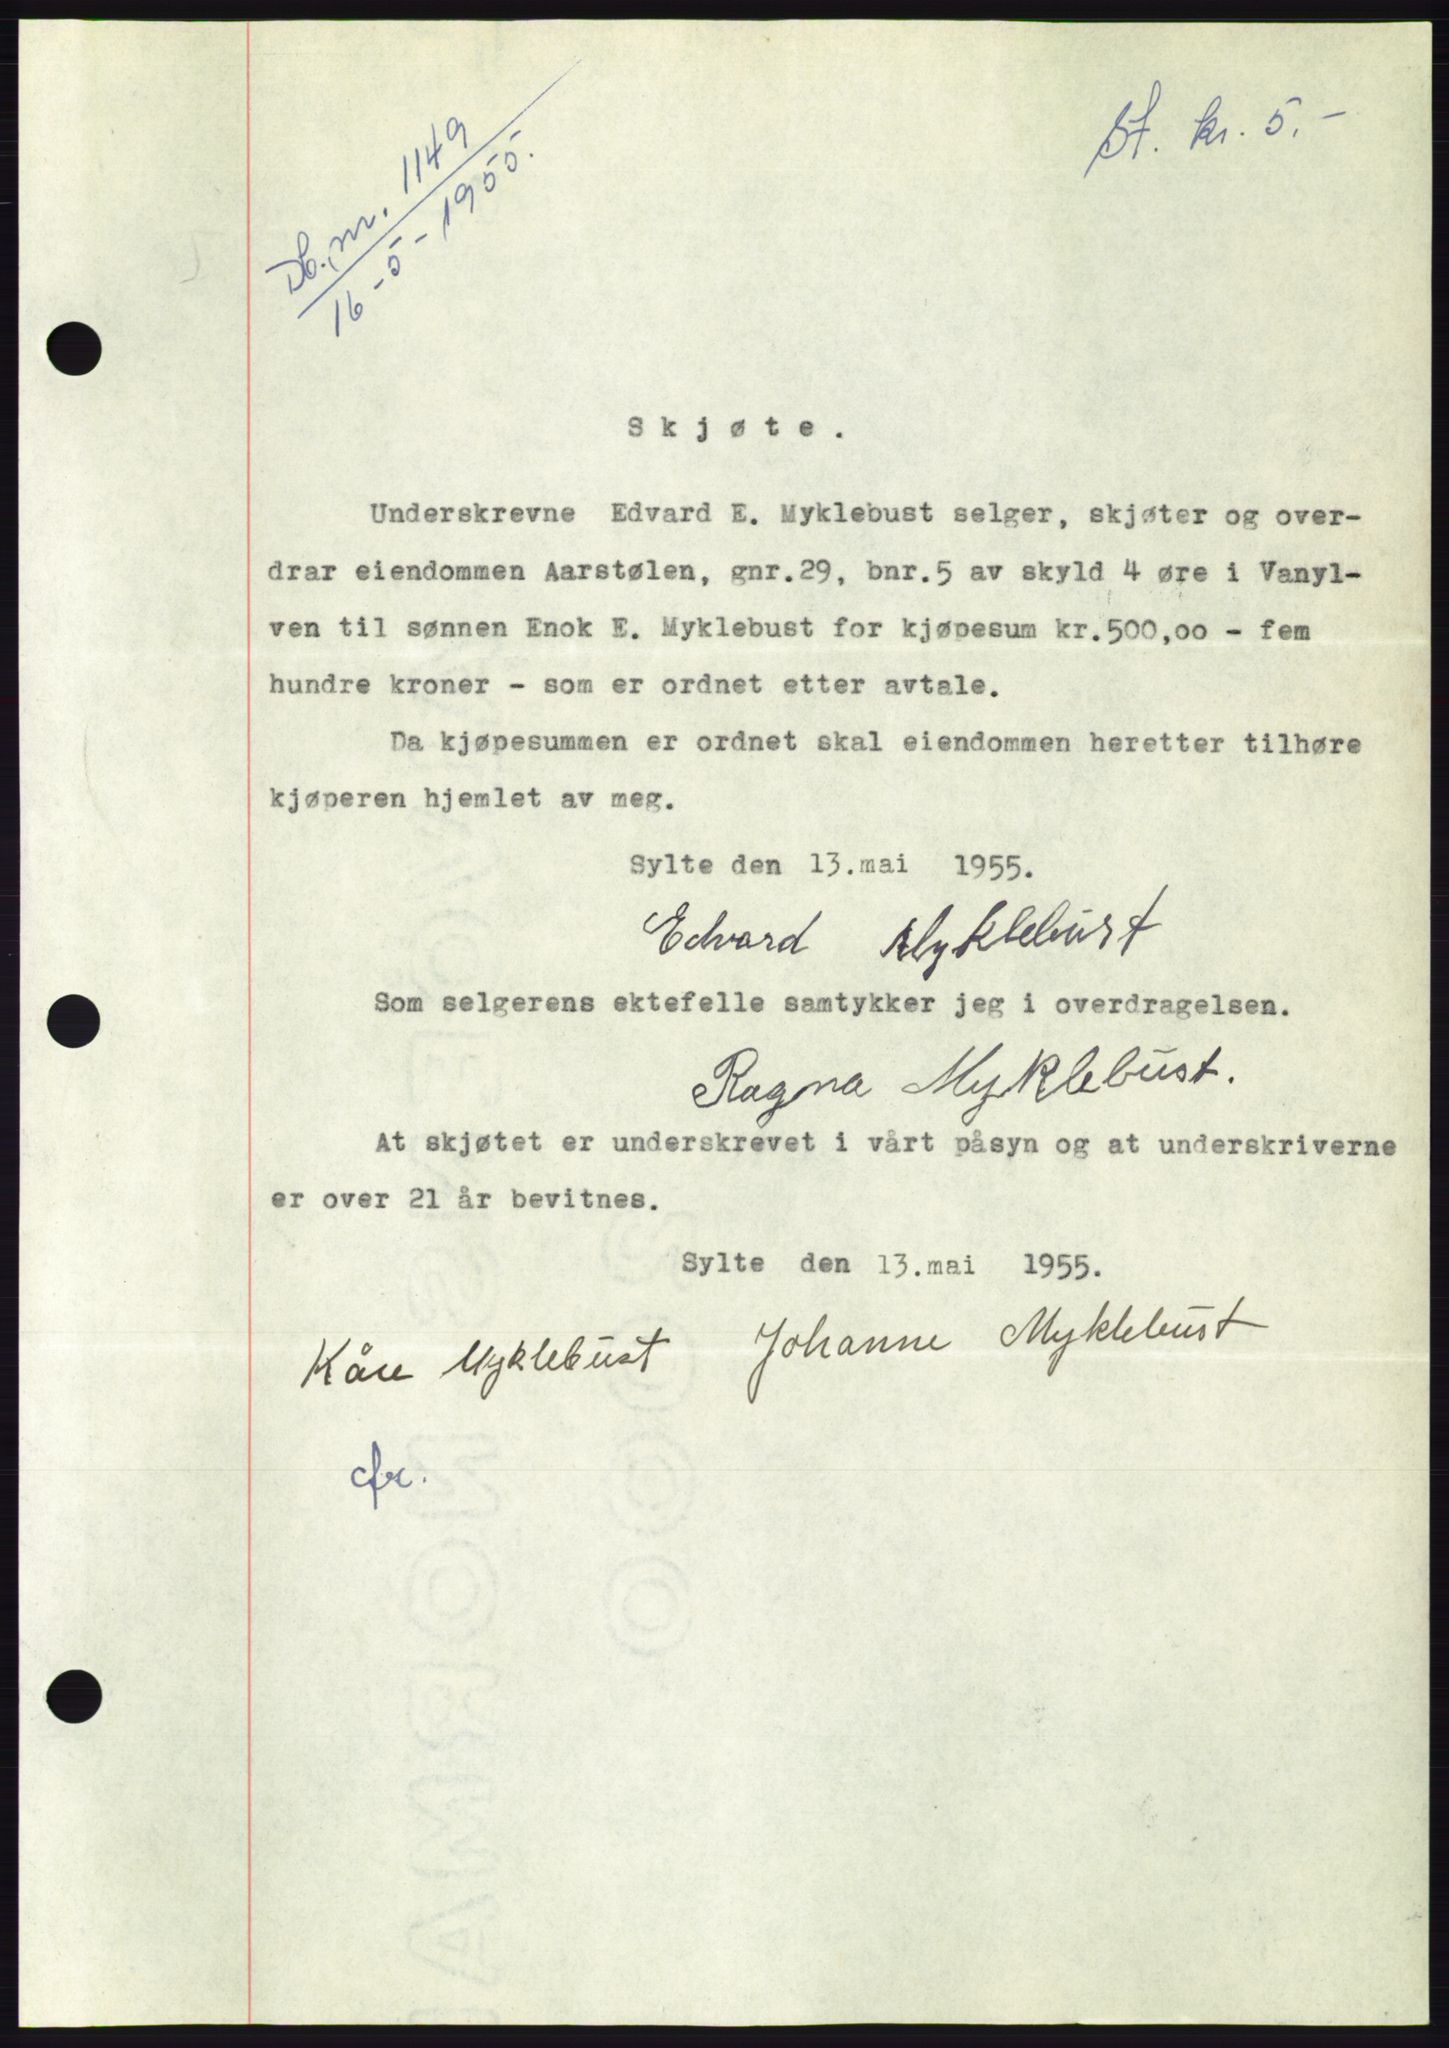 Db.nr. 1149
16-5-1955.
St. kr. 5.-
Skjøte.
Underskrevne Edvard E. Myklebust selger, skjøter og over-
drar eiendommen Aarstølen, gnr.29, bnr.5 av skyld 4 øre i Vanyl-
ven til sønnen Enok E. Myklebust for kjøpesum kr.500,oo - fem
hundre kroner - som er ordnet etter avtale.
Da kjøpesummen er ordnet skal eiendommen heretter tilhøre
kjøperen hjemlet av meg.
Sylte den 13.mai 1955.
Edvard Myklebust
Som selgerens ektefelle samtykker jeg i overdragelsen.
Ragna Myklebust.
At skjøtet er underskrevet i vårt påsyn og at underskriverne
er over 21 år bevitnes.
Sylte den 13.mai 1955.
Kåre Myklebust Johanne Myklebust
cfr.